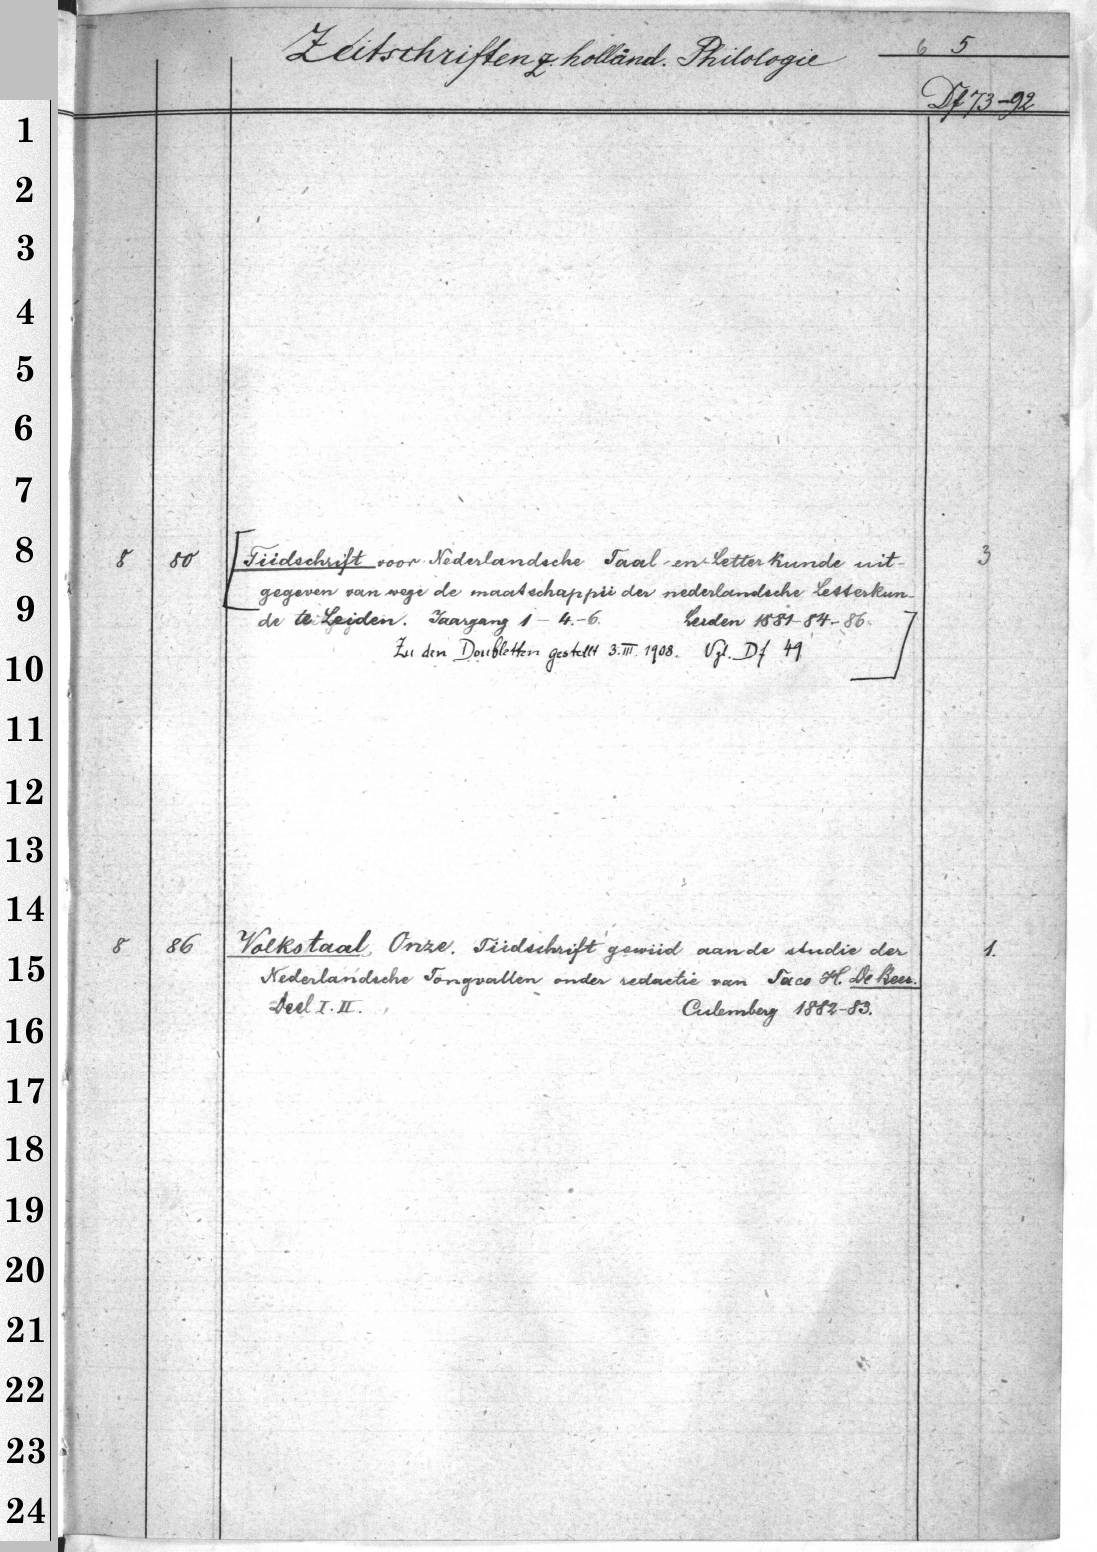 Zeitschriften z. holländ. Philologie
6 5
Df 73-92
1
2
3
4
5
6
7
8 8 80 [Tijdschrift voor Nederlandsche Taal- en Letterkunde uit- 3
gegeven van wege de maatschappij der nederlandsche Letterkun-
9 de te Leiden. Jaargang 1 - 4.-6. Leiden 1881-84-86.
Zu den Doubletten gestellt 3.III.1908. Vgl. Df 49]
10
11
12
13
14
8 86 Volkstaal, Onze. Tijdschrift gewijd aan de studie der 1.
15 Nederlandsche Tongvallen onder redactie van Taco H. De Beer.
Deel I. II. Culemberg 1882-83.
16
17
18
19
20
21
22
23
24